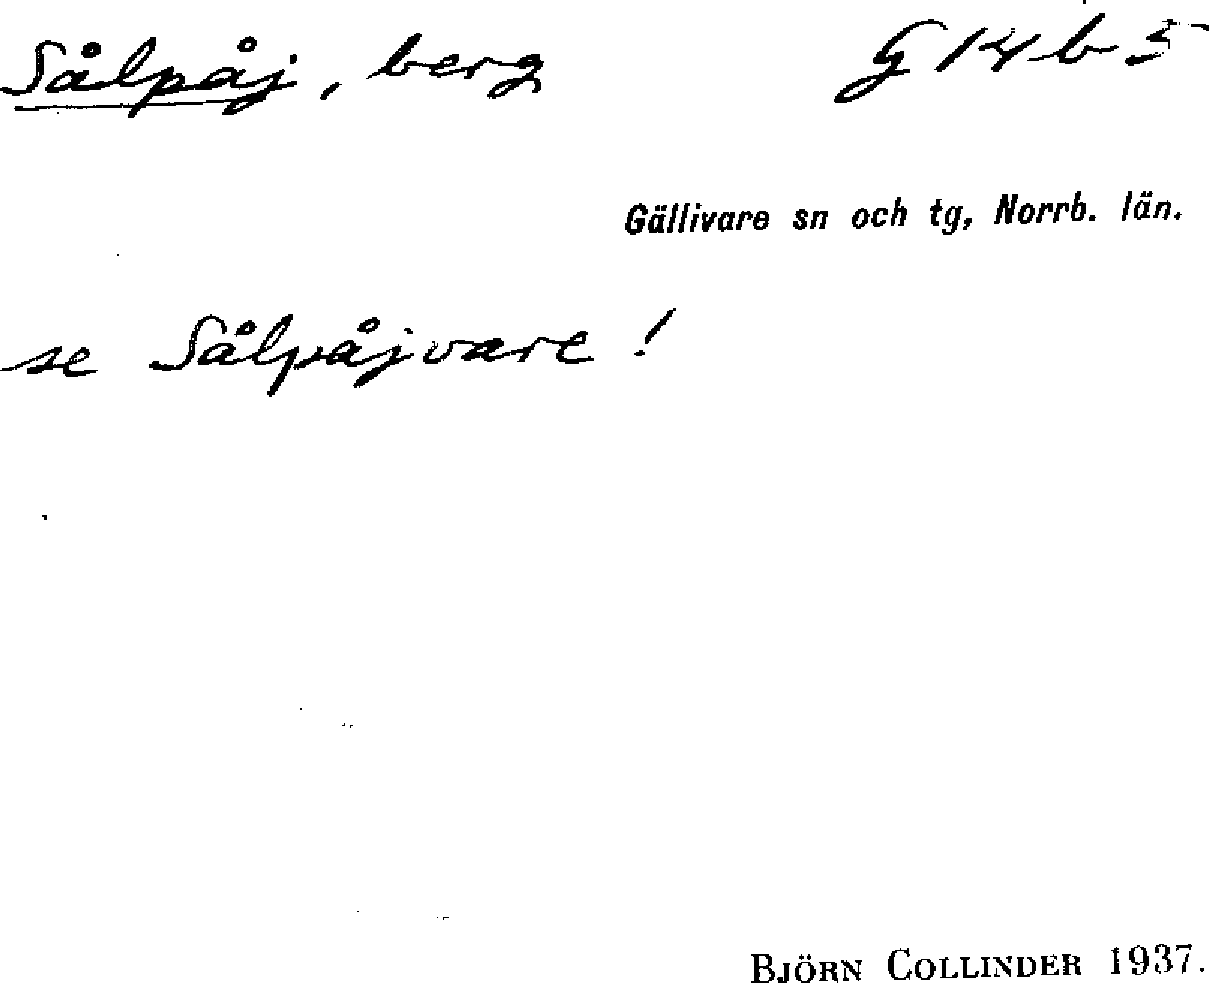 Sålpåj, berg G 14 b 5
Gällivare sn och tg, Norrb. län.
se Sålpåjvare!
BJÖRN COLLINDER 1937.